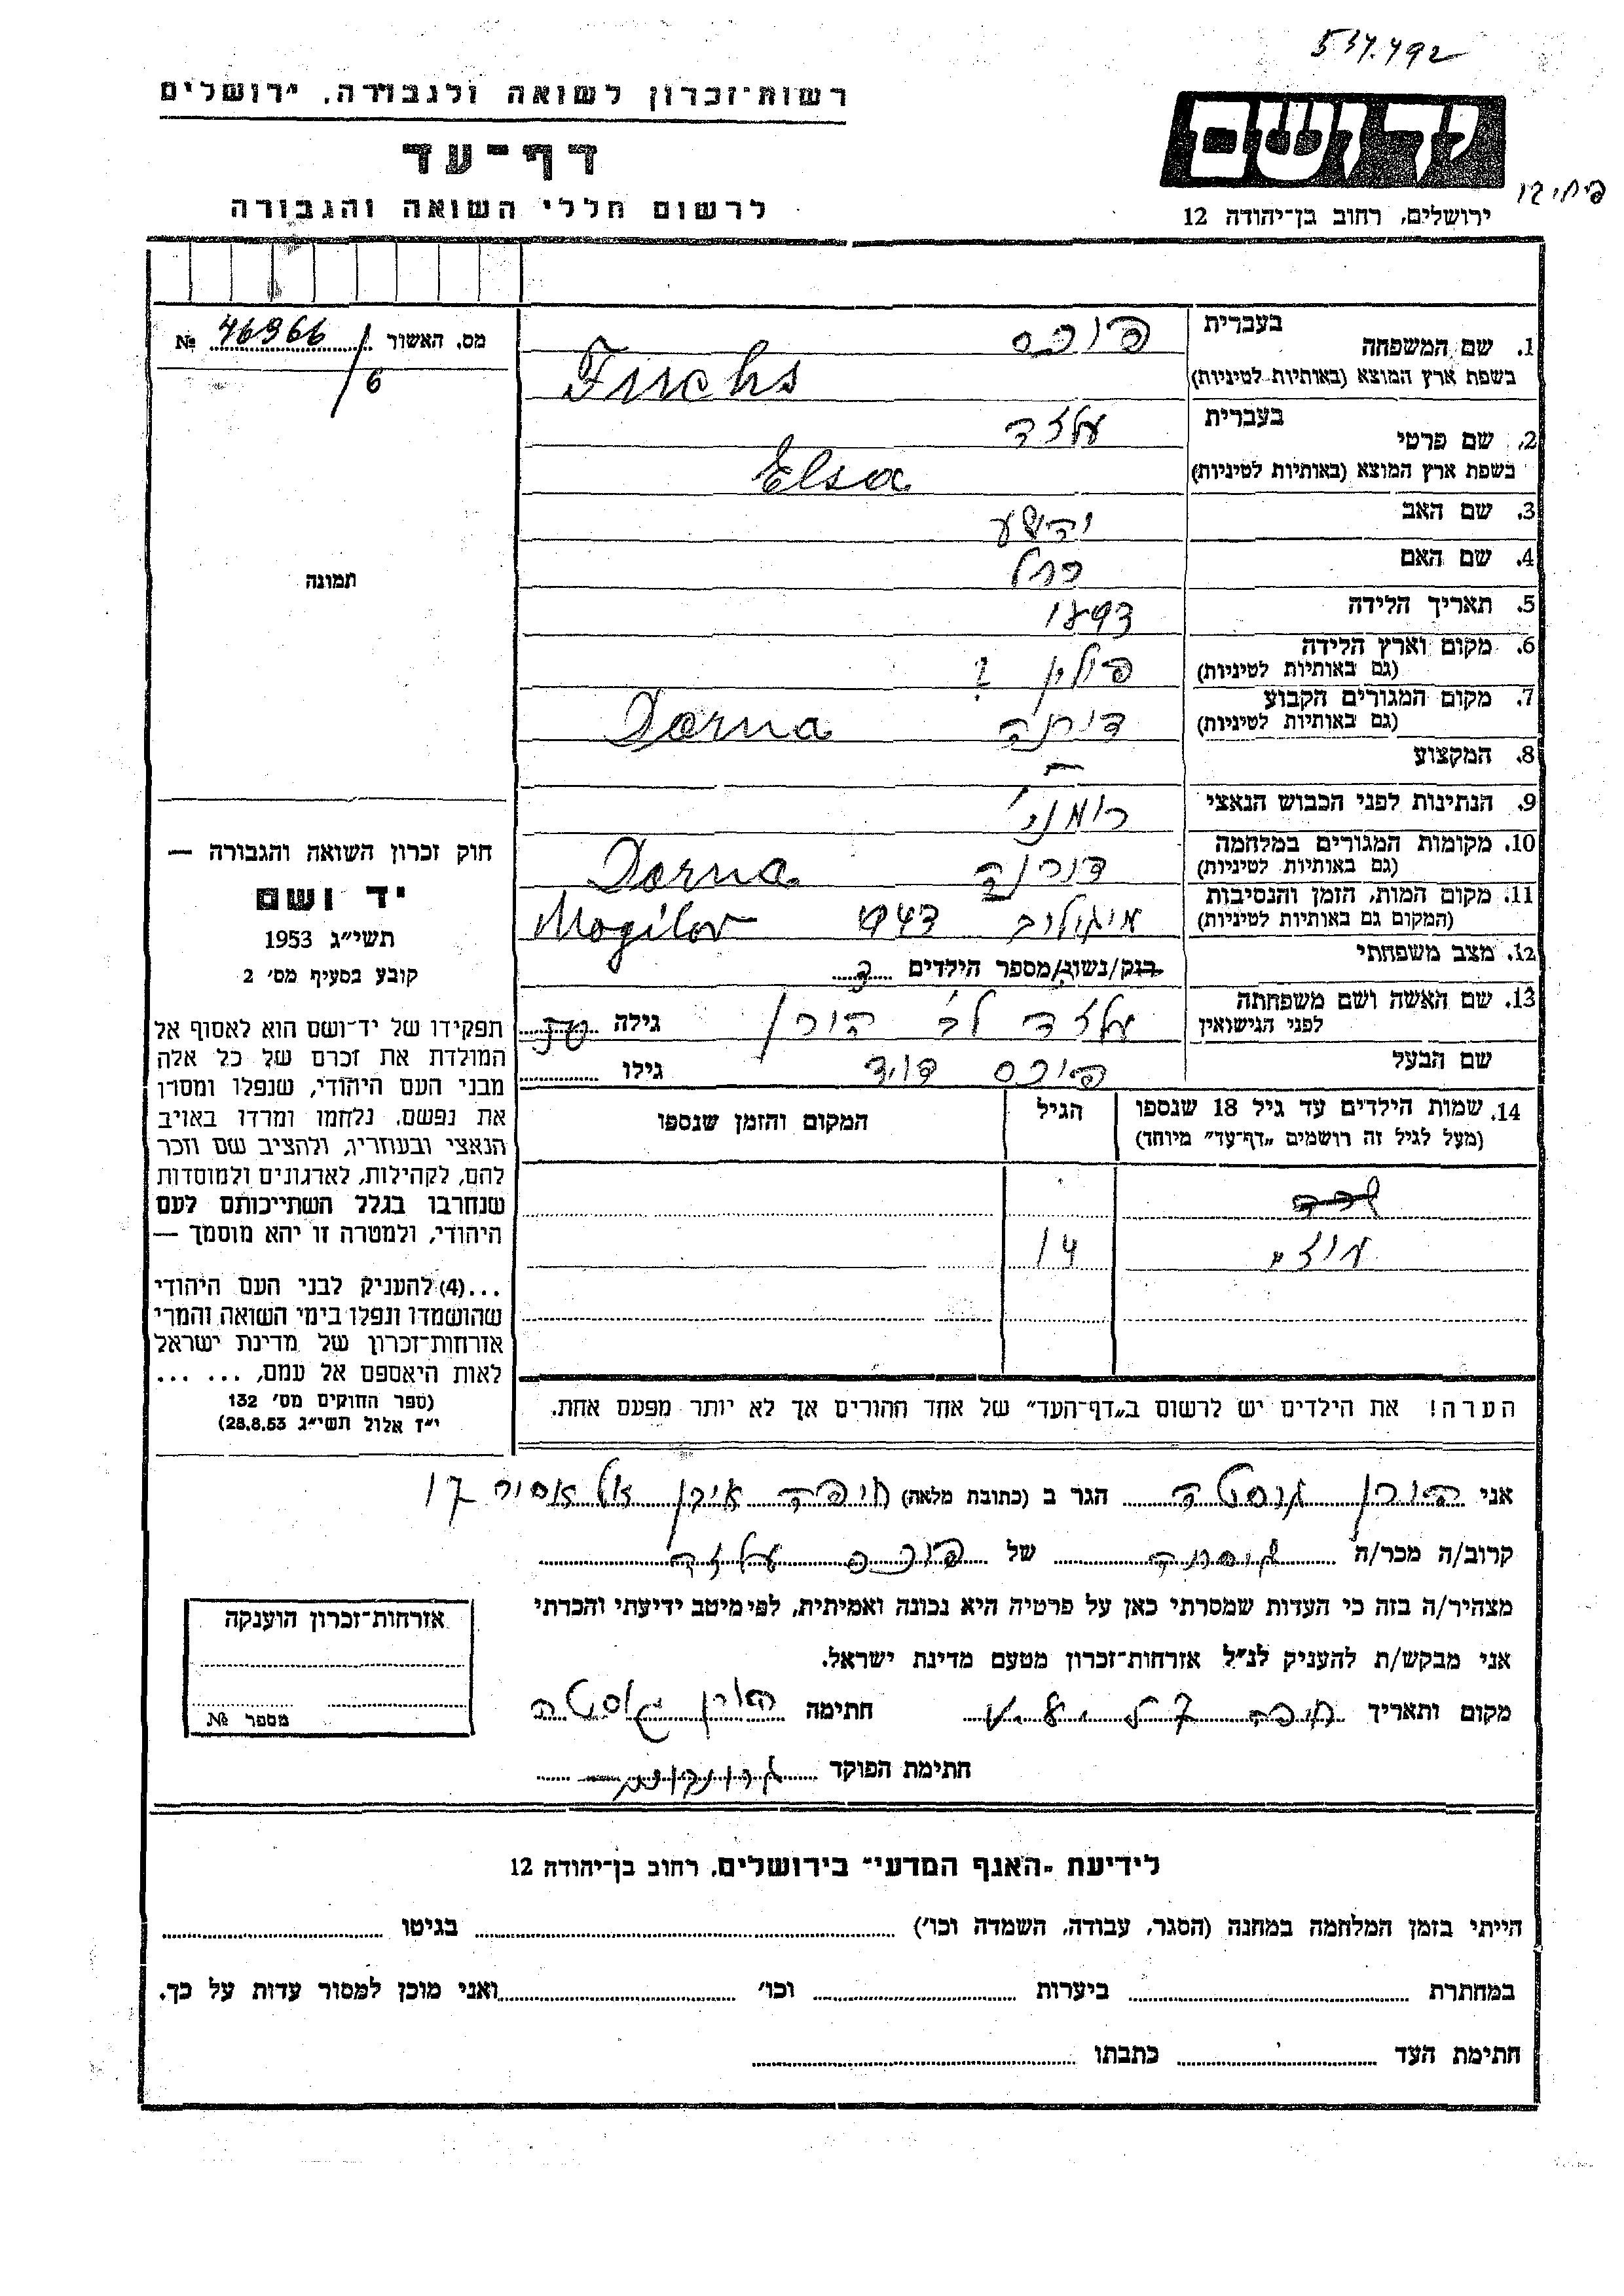 534.492
רשות־זכרון לשואה ולגבורה, ירושלים
דף־עד
לרשום חללי השואה והגבורה
יד ושם
ירושלים, רחוב בן־יהודה 12
מס. האשור 46966 №
/6
בעברית
1. שם המשפחה פוכס
בשפת ארץ המוצא (באותיות לטיניות) Fuchs
בעברית
2. שם פרטי עלזה
בשפת ארץ המוצא (באותיות לטיניות) Elsa
3. שם האב יהושע
4. שם האם פרל
5. תאריך הלידה 1893
6. מקום וארץ הלידה פולין ?
(גם באותיות לטיניות)
7. מקום המגורים הקבוע דורנה Dorna
(גם באותיות לטיניות)
8. המקצוע —
9. הנתינות לפני הכבוש הנאצי רומני'
10. מקומות המגורים במלחמה דורנה Dorna
(גם באותיות לטיניות)
11. מקום המות, הזמן והנסיבות מוגילוב Mogilov
(המקום גם באותיות לטיניות)
12. מצב משפחתי רווק/נשוי/מספר הילדים
13. שם האשה ושם משפחתה עלזה לב' הורן גילה
לפני הנישואין
שם הבעל פוכס דוד גילו
14. שמות הילדים עד גיל 18 שנספו הגיל המקום והזמן שנספו
(מעל לגיל זה רושמים „דף־עד” מיוחד)
14
הערה! את הילדים יש לרשום ב„דף־העד” של אחד ההורים אך לא יותר מפעם אחת.
תמונה
חוק זכרון השואה והגבורה —
יד ושם
תשי״ג 1953
קובע בסעיף מס׳ 2
תפקידו של יד־ושם הוא לאסוף אל
המולדת את זכרם של כל אלה
מבני העם היהודי, שנפלו ומסרו
את נפשם, נלחמו ומרדו באויב
הנאצי ובעוזריו, ולהציב שם וזכר
להם, לקהילות, לארגונים ולמוסדות
שנחרבו בגלל השתייכותם לעם
היהודי, ולמטרה זו יהא מוסמך —
...(4) להעניק לבני העם היהודי
שהושמדו ונפלו בימי השואה והמרי
אזרחות־זכרון של מדינת ישראל
לאות היאספם אל עמם, ... ...
(ספר החוקים מס׳ 132
י״ז אלול תשי״ג 28.8.53)
אני הורן גוסטה הגר ב (כתובת מלאה) חיפה 17
קרוב/ה מכר/ה גיסתה של פוכס עלזה
מצהיר/ה בזה כי העדות שמסרתי כאן על פרטיה היא נכונה ואמיתית, לפי מיטב ידיעתי והכרתי
אני מבקש/ת להעניק לנ״ל אזרחות־זכרון מטעם מדינת ישראל.
מקום ותאריך חיפה חתימה הורן גוסטה
חתימת הפוקד
אזרחות־זכרון הוענקה
מספר №
לידיעת „האגף המדעי” בירושלים, רחוב בן־יהודה 12
הייתי בזמן המלחמה במחנה (הסגר, עבודה, השמדה וכו׳) בגיטו
במחתרת ביערות וכו׳ ואני מוכן למסור עדות על כך.
חתימת העד כתבתו